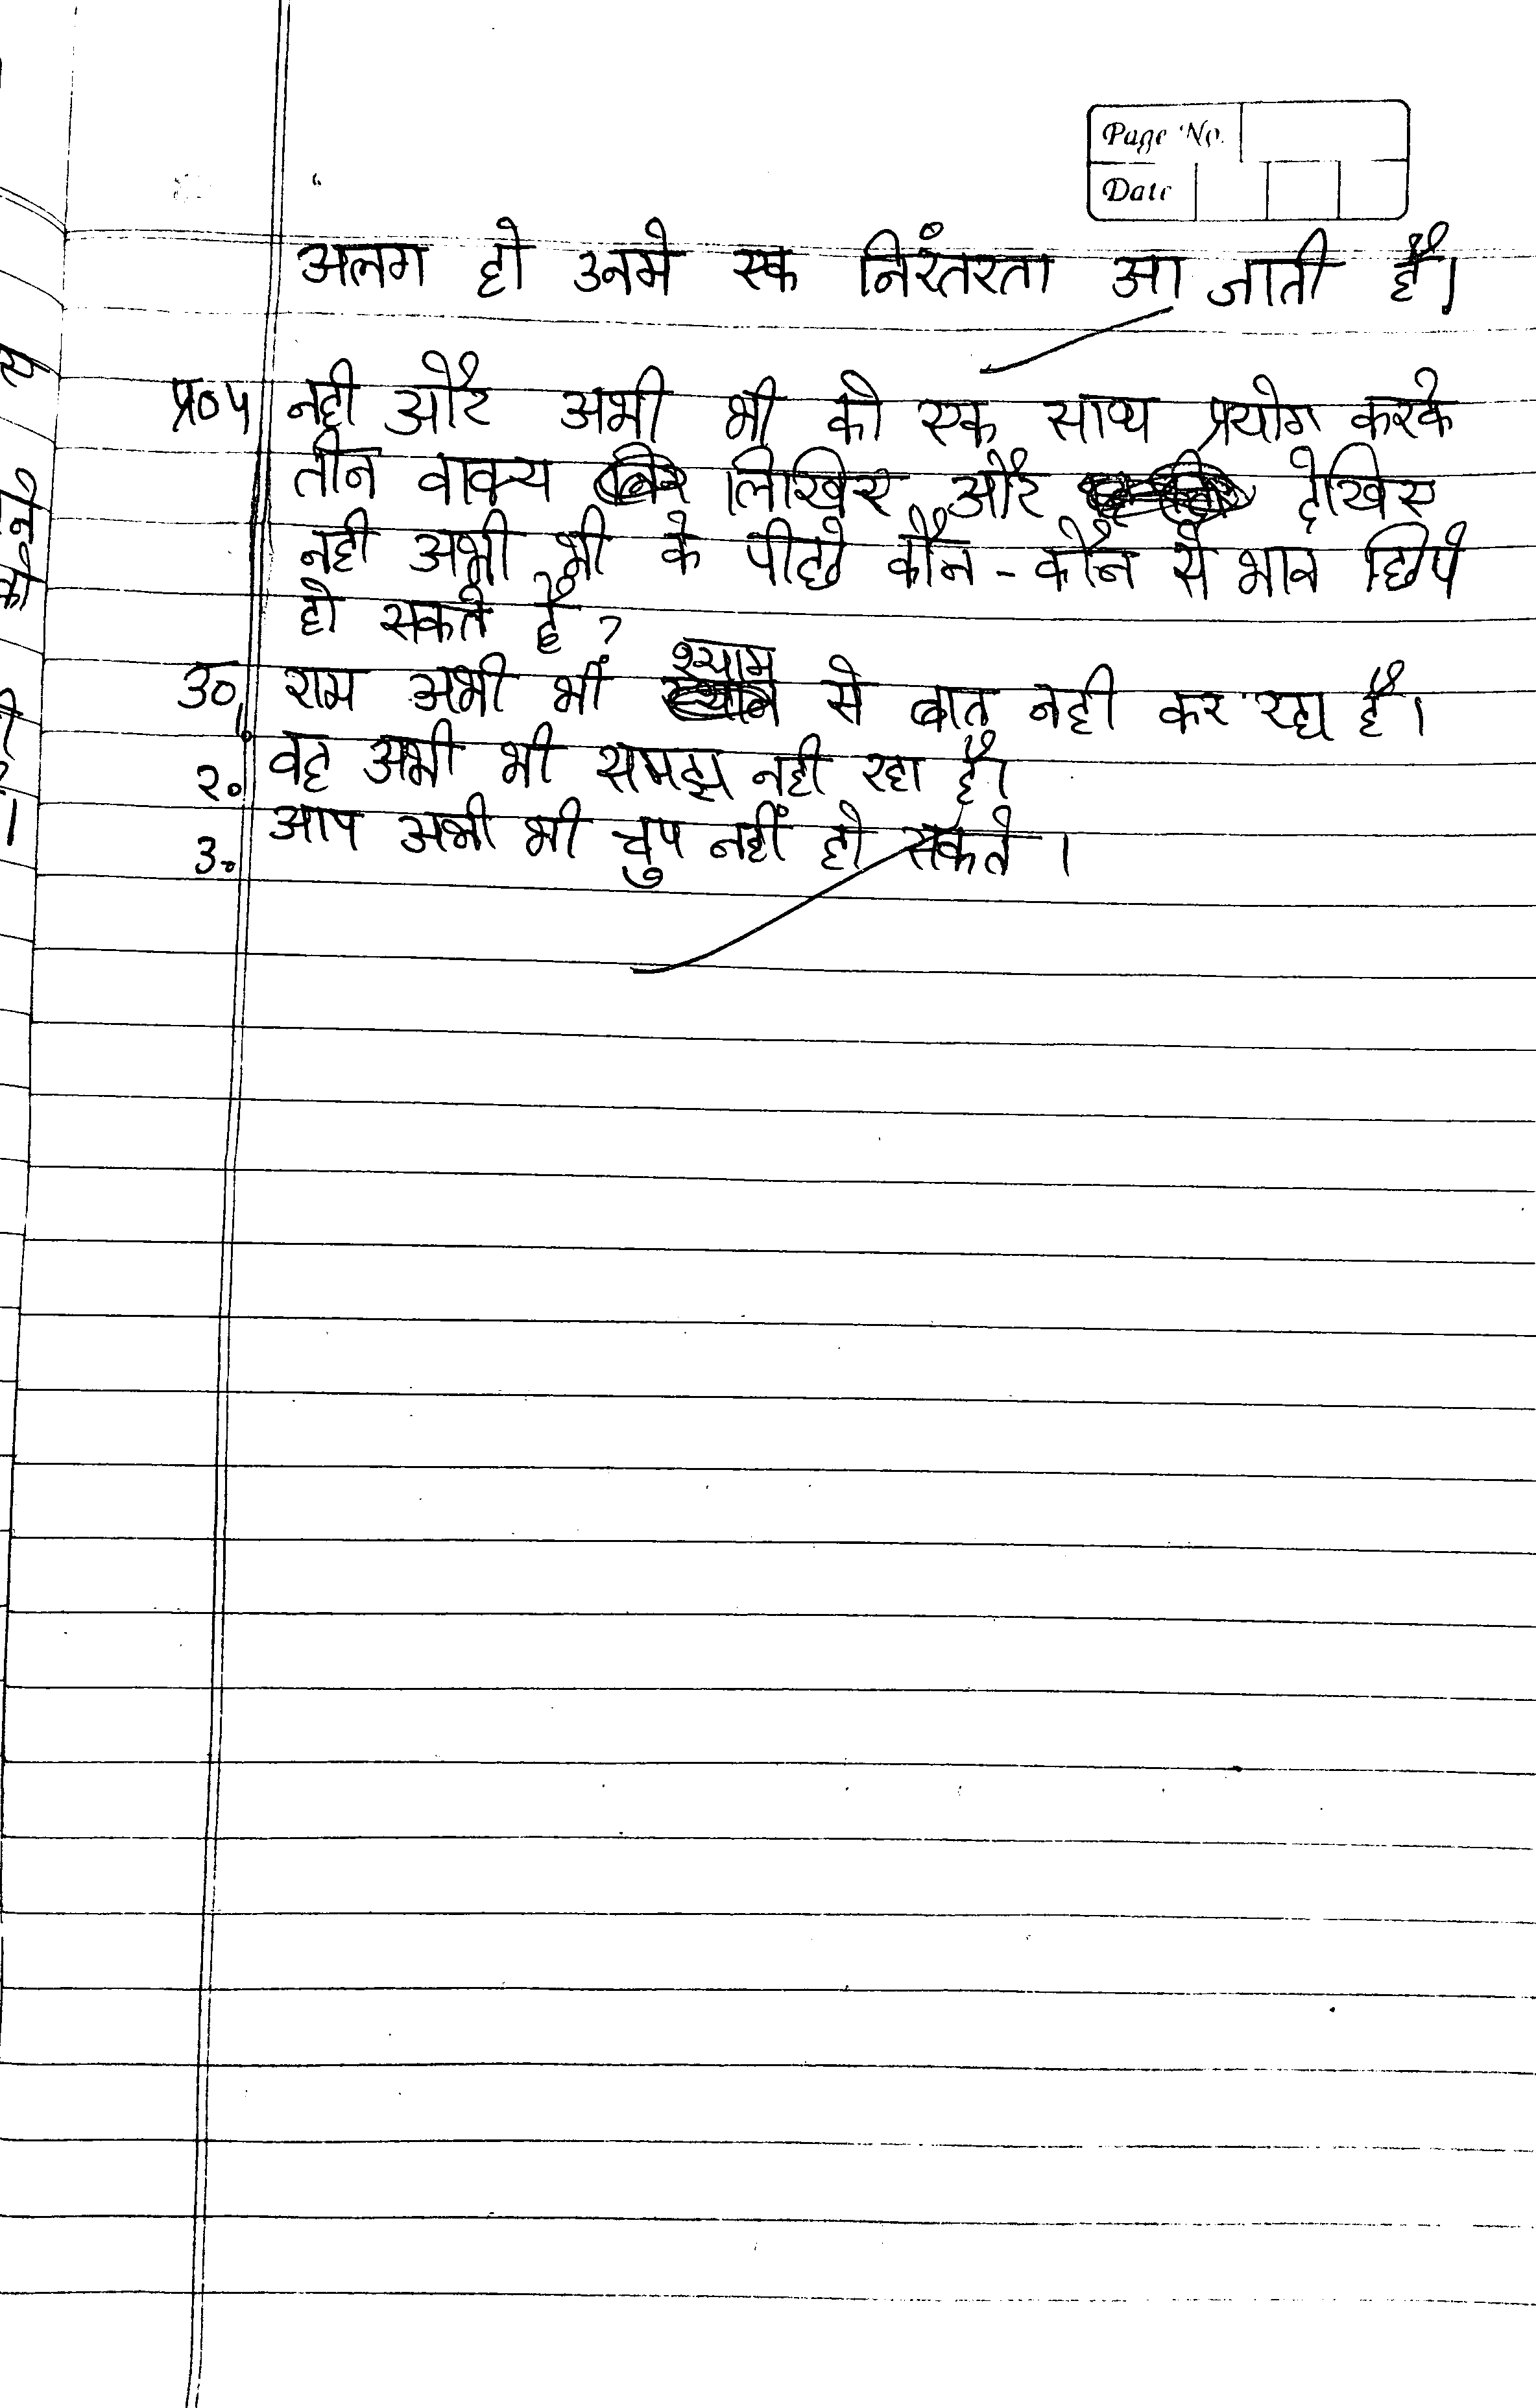 Page No.
Date
अलग हो उनमे एक निरंतरता आ जाती है।
प्र०५ नही और अभी भी को एक साथ प्रयोग करके
तीन वाक्य लिखिए और देखिए
नही अभी भी के पीछे कौन - कौन से भाव छिपे
हो सकते है ?
उ० राम अभी भी श्याम से बात नही कर रहा है।
२. वह अभी भी समझ नही रहा है।
३. आप अभी भी चुप नहीं हो सकते ।